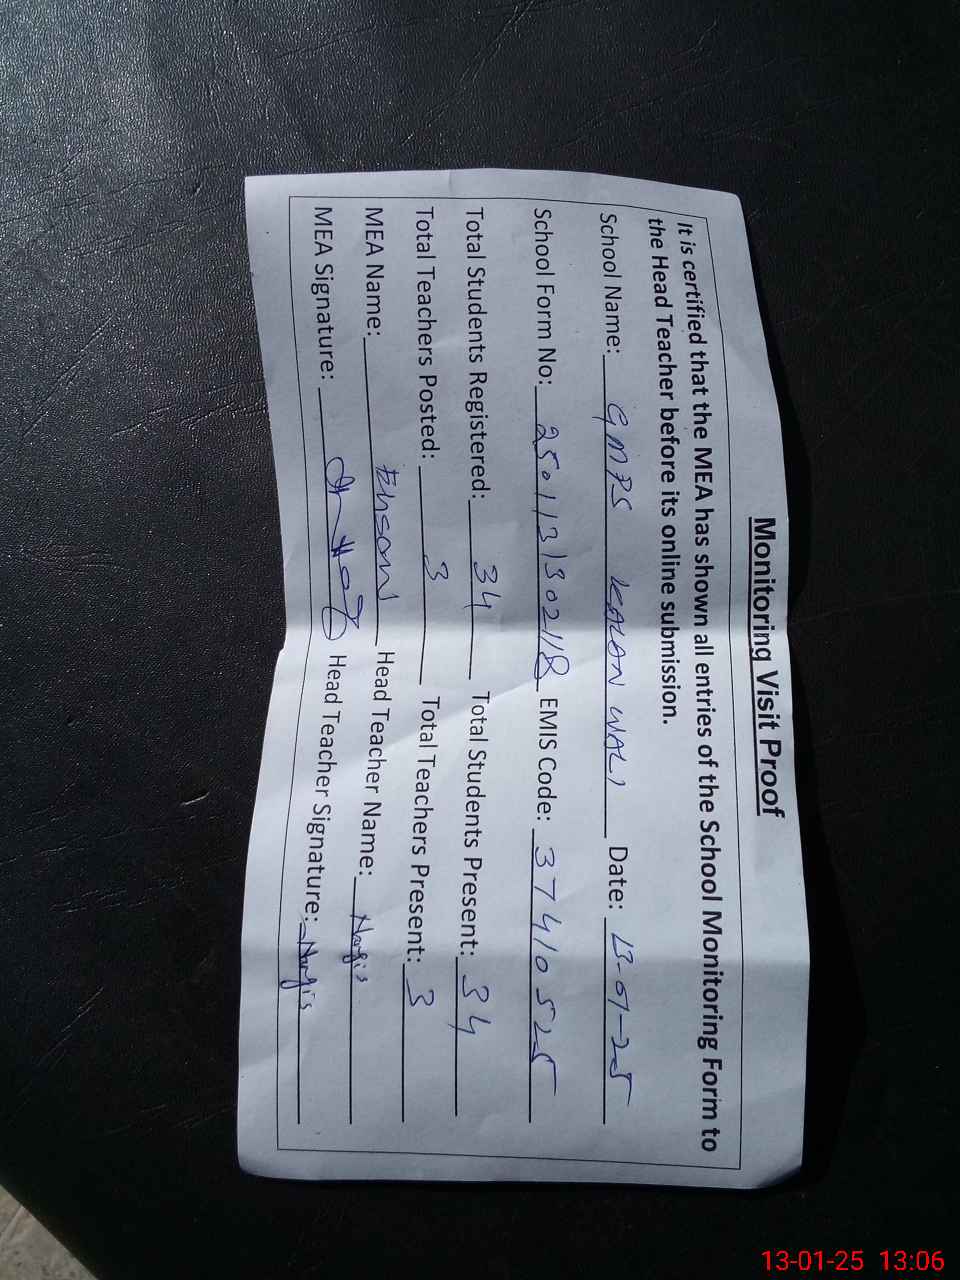 Monitoring Visit Proof
It is certified that the MEA has shown all entries of the School Monitoring Form to
the Head Teacher before its online submission.
School Name: GMPS KALAN WALI Date: 13-01-25
School Form No: 250131302118 EMIS Code: 37410525
Total Students Registered: 34 Total Students Present: 34
Total Teachers Posted: 3 Total Teachers Present: 3
MEA Name: Ehsan Head Teacher Name: Nargis
MEA Signature: Head Teacher Signature: Nargis
13-01-25 13:06